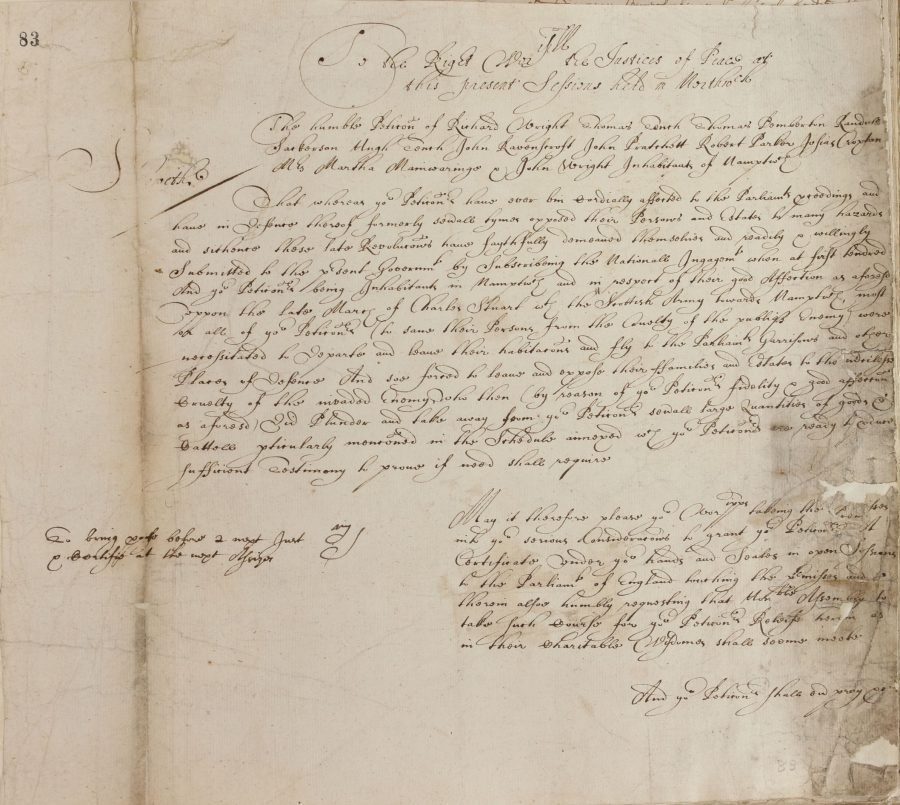 83
To the Right Worpll the Justices of Peace at
this present Sessions held in Northw ch
The humble Peticon of Richard Wright Thomas Tench Thomas Pemberton Randull
Jackerson Hugh Tench John Ravenscroft John Pratchett Robert Parker Josias Croxton
Mrs Martha Maniwaringe & John Wright Inhabitants of Namptwch
Sheweth
That whereas yor Peticonrs have ever bin Cordially affected to the Parliamts pceedings and
have in Defence thereof formerly sevall tymes exposed their Persons and Estates to many hazards
and sithence these late Revolucons have faythfully demeaned themselves and readily & willingly
Submitted to the psent Governmt by Subscribeing the Nationall Ingagemt when at first tendred
And yor Peticonrs being Inhabitants in Namptwch and in respect of their good Affection as aforesd
vppon the late March of Charles Stuart wth the Scottish Army towards Namptwch, most
or all of yor Peticonrs (to save their Persons from the Cruelty of the publique Enemy) were
necessitated to Departe and leave their habitacons and fly to the Parliamts Garrisons and other
Places of Defence And soe forced to leave and expose their ffamilies and Estates to the mercilesse
Cruelty of the invaded Enemy, who then (by reason of yor Peticonrs fidelity & good affection
as aforesd) Did Plunder and take away from yor Peticonrs sevall large Quantities of goods &
Cattells pticularly mentioned in the Schedule annexed wch yor Peticonrs are ready to
sufficient Testimony to prove if need shall require
May it therefore please yor Worpps takeing the
into yor serious Consideracons to grant yor Peticonrs
Certificate vnder yor hands and Seales in open Sessions
to the Parliamt of England touching the Pmisses and
therein alsoe humbly requesting that Honble Assembly to
take such Course for yor Peticonrs Releife herein as
in their Charitable Wisdomes shall seeme meete
And yor Peticonrs shall ever pray &c
To bring before 2 next Just
& Certifie at the next Assizes
83